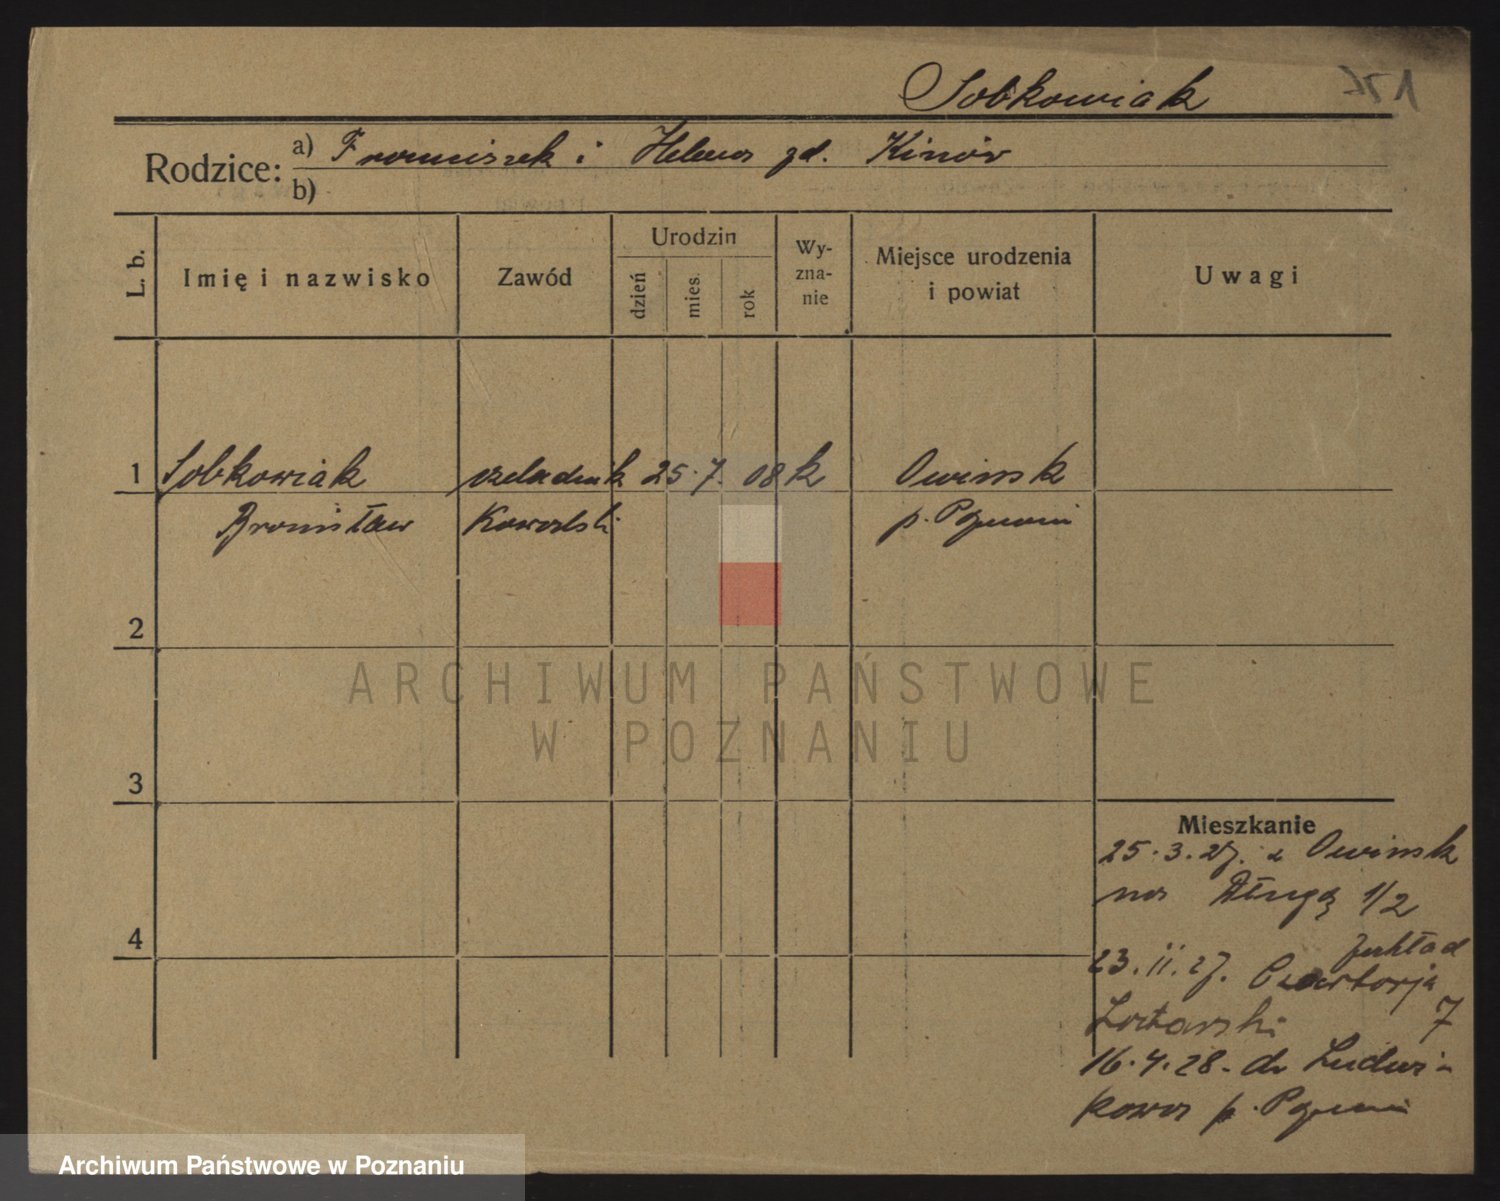 Sobkowiak
Rodzice: a) Franciszek i Helena zd. Kinów
b)
L. b.
Imię i nazwisko
Zawód
Urodzin
dzień
mies.
rok
Wy-
zna-
nie
Miejsce urodzenia
i powiat
Uwagi
1 Sobkowiak czeladnik 25. 7. 08 k Owinsk
Bronisław Kowalski p. Poznań
2
3
4
Mieszkanie
25.3.27. z Owinsk
na Długą 1/2
Zakład
23.11.27. Czartorja
7
16.4.28. do Ludwi-
kowa p. Poznań
ARCHIWUM PAŃSTWOWE
W POZNANIU
Archiwum Państwowe w Poznaniu